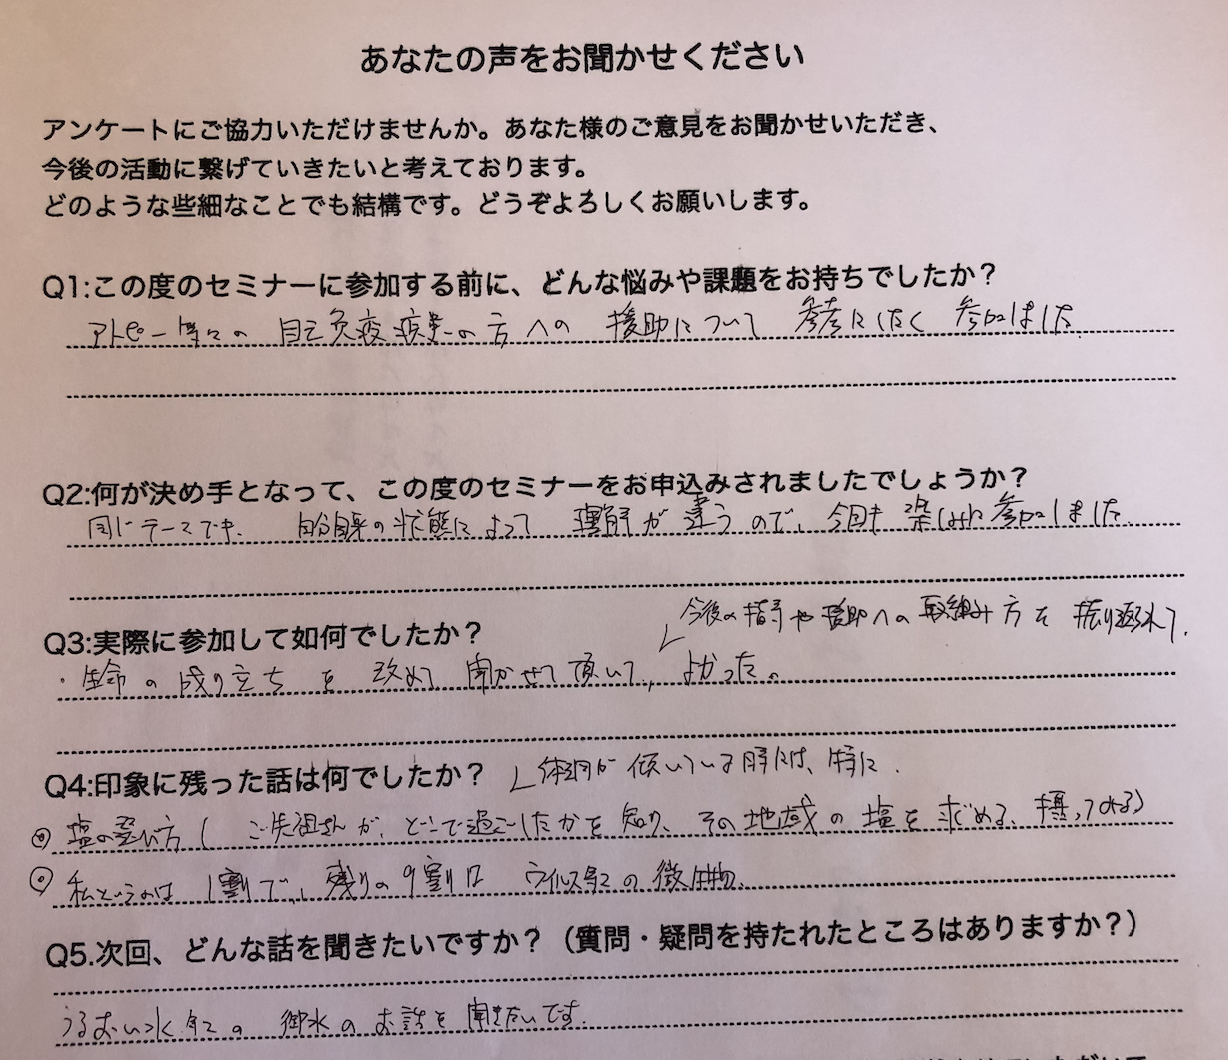 あなたの声をお聞かせください
アンケートにご協力いただけませんか。あなた様のご意見をお聞かせいただき、
今後の活動に繋げていきたいと考えております。
どのような些細なことでも結構です。どうぞよろしくお願いします。
Q1:この度のセミナーに参加する前に、どんな悩みや課題をお持ちでしたか？
アトピー等々の 自己免疫疾患の方への 援助について 参考にしたく 参加しました
Q2:何が決め手となって、この度のセミナーをお申込みされましたでしょうか？
同じテーマでも、自分自身の状態によって 理解が違うので、今回も楽しみに参加しました
Q3:実際に参加して如何でしたか？
今後の指導や援助への取組み方を 振り返れて、
・生命の成り立ちを 改めて 聞かせて頂いて、よかった。
Q4:印象に残った話は何でしたか？
体調が 傾いている時には、特に、
◎ 塩の選び方（ ご先祖さんが、どこで過ごしたかを 知り、その地域の 塩を 求める、摂ってみる）
◎ 私というのは 1割で、残りの9割は ウイルス等々の微生物。
Q5.次回、どんな話を聞きたいですか？（質問・疑問を持たれたところはありますか？）
うるおい水等々の 御水のお話を 聞きたいです。